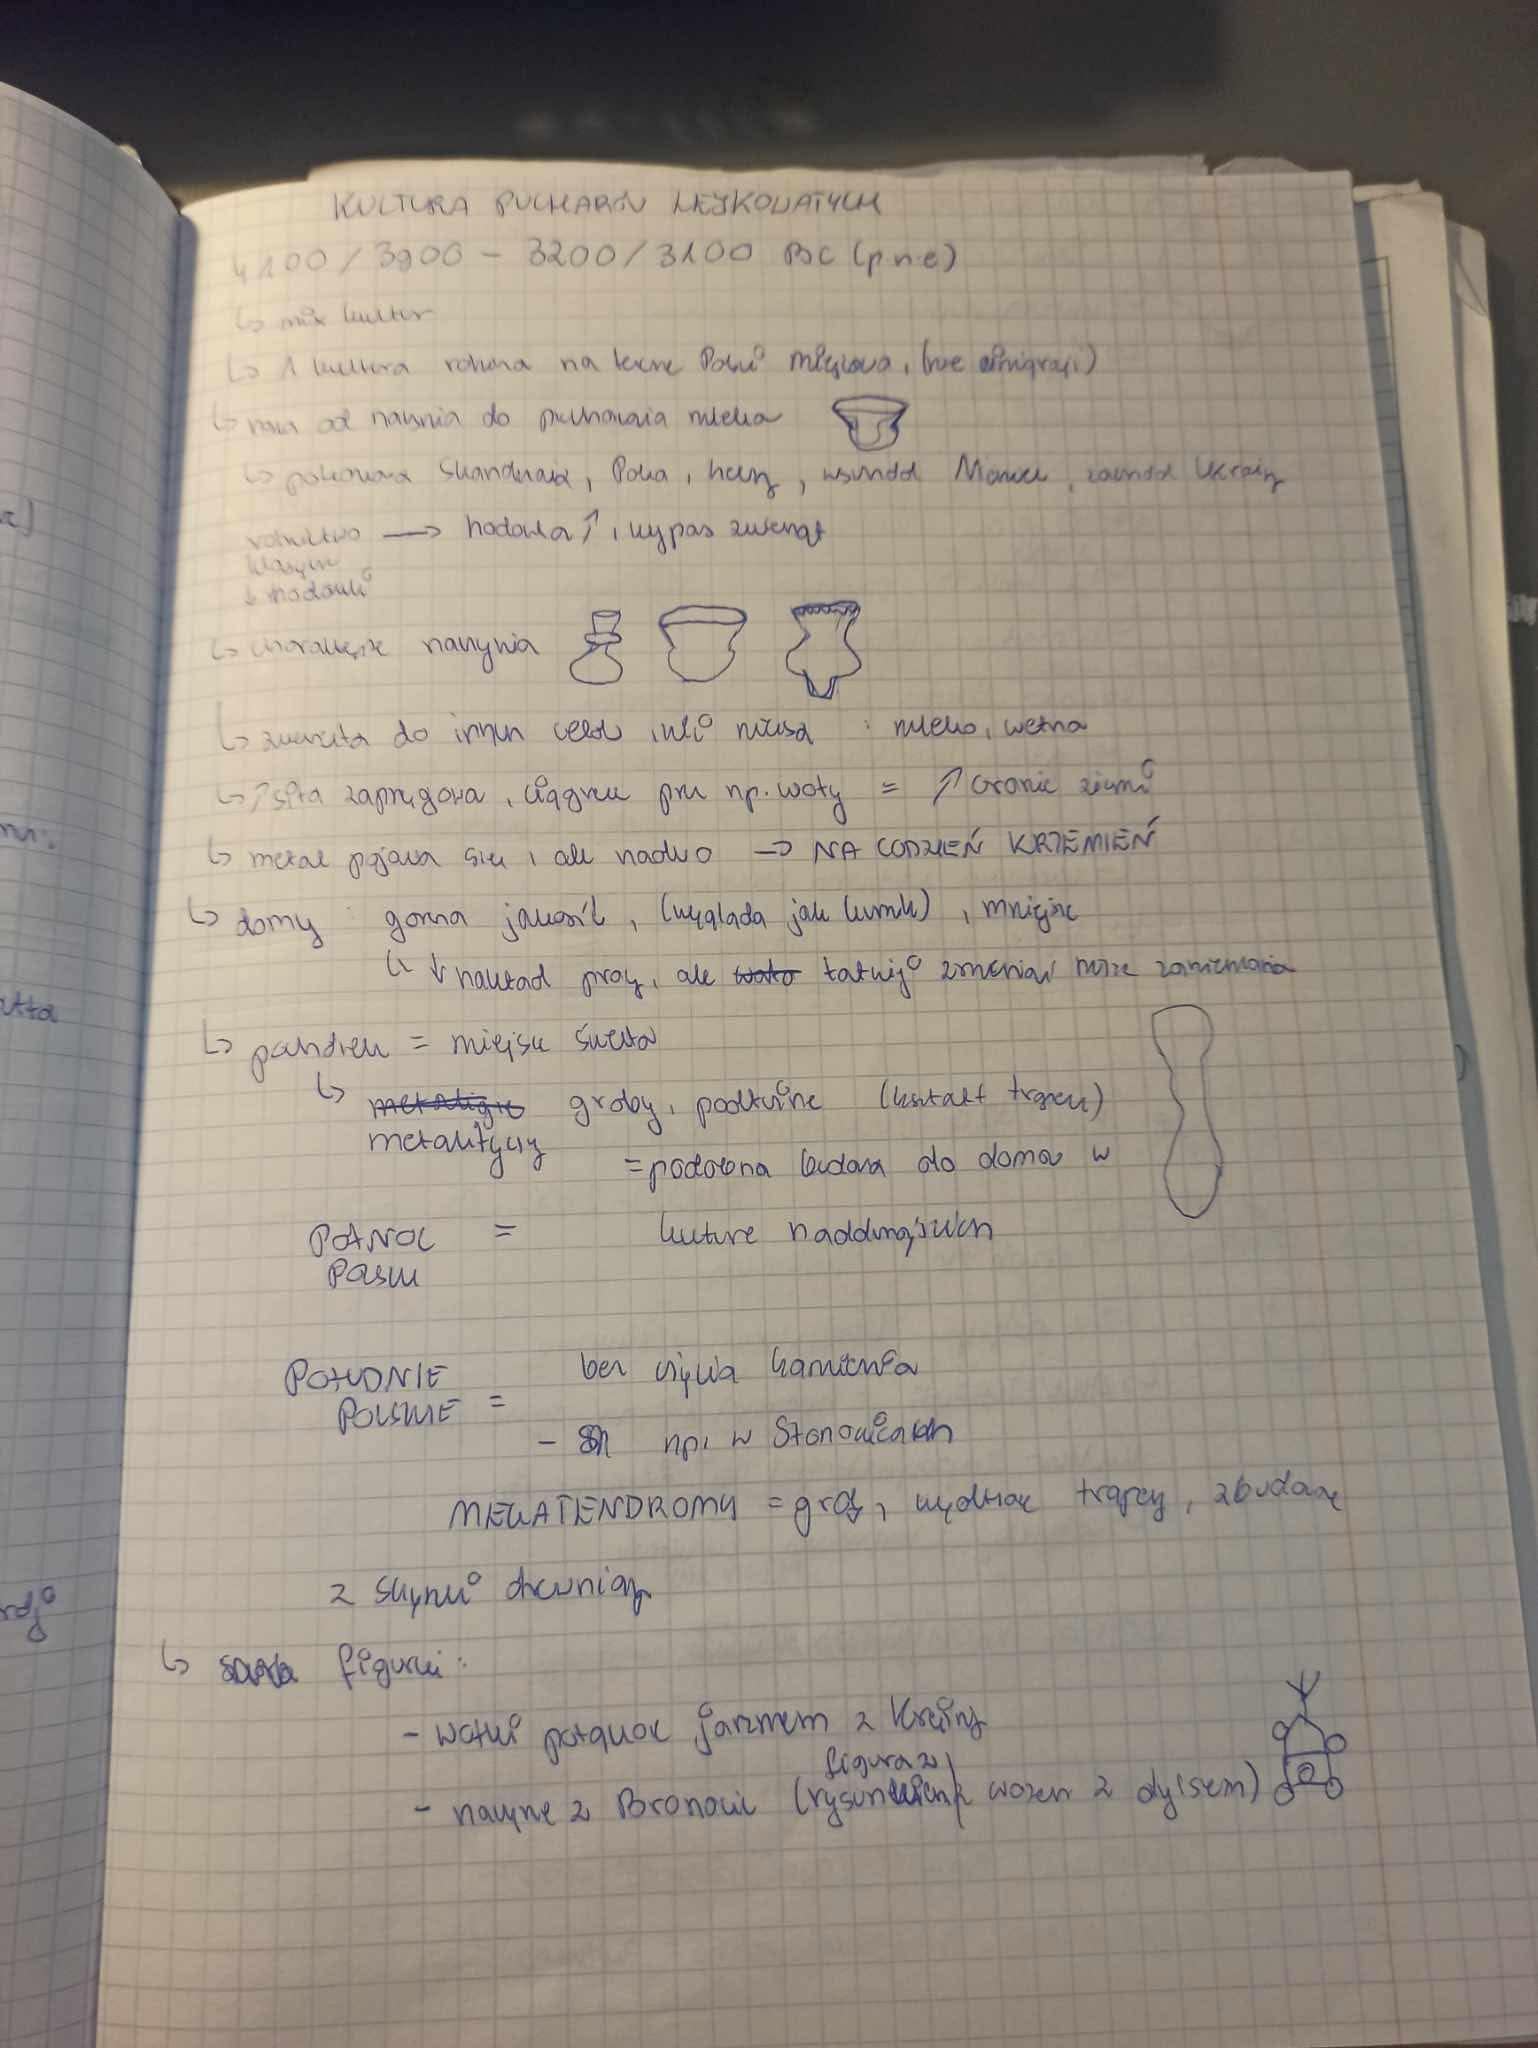 KULTURA PUCHARÓW LEJKOWATYCH
4100/3900 - 3200/3100 BC (p.n.e)
↳ mix kultur
↳ 1 kultura rolnicza na terenie Polski miejscowa, (nie imigracji)
↳ od naczynia do mleka
↳ Skandynawia, Polska, Czechy, wschód Niemiec, zachód Ukrainy
rolnictwo → hodowla ↑, wypas zwierząt
↓ hodowli
↳ naczynia
↳ zwierzęta do innych celów niż mięsa : mleko, wełna
↳ ↑ siła zaprzęgowa, ciągnięcie przez np. woły = ↑ oranie ziemi
↳ metal pojawia się, ale rzadko → NA CODZIEŃ KRZEMIEŃ
↳ domy gorsza jakość, (wygląda jak kurnik), mniejsze
↳ ↓ nakład pracy, ale łatwiej zmieniać miejsce zamieszkania
↳ = miejsce święte
↳ groby, podłużne (kształt trapezu)
= podobna budowa do domów w
PÓŁNOC = kulturze naddunajskich
POLSKI
POŁUDNIE bez użycia kamienia
POLSKIE =
- np. w Słonowicach
MEGATENDROMY = groby, wydłużone trapezy, zbudowane
z skrzynki drewnianej
↳ figurki:
- wołki połączone jarzmem z Krężnicy
figura z
- naczynie z Bronocic (rysunkiem wozem z dyszlem)